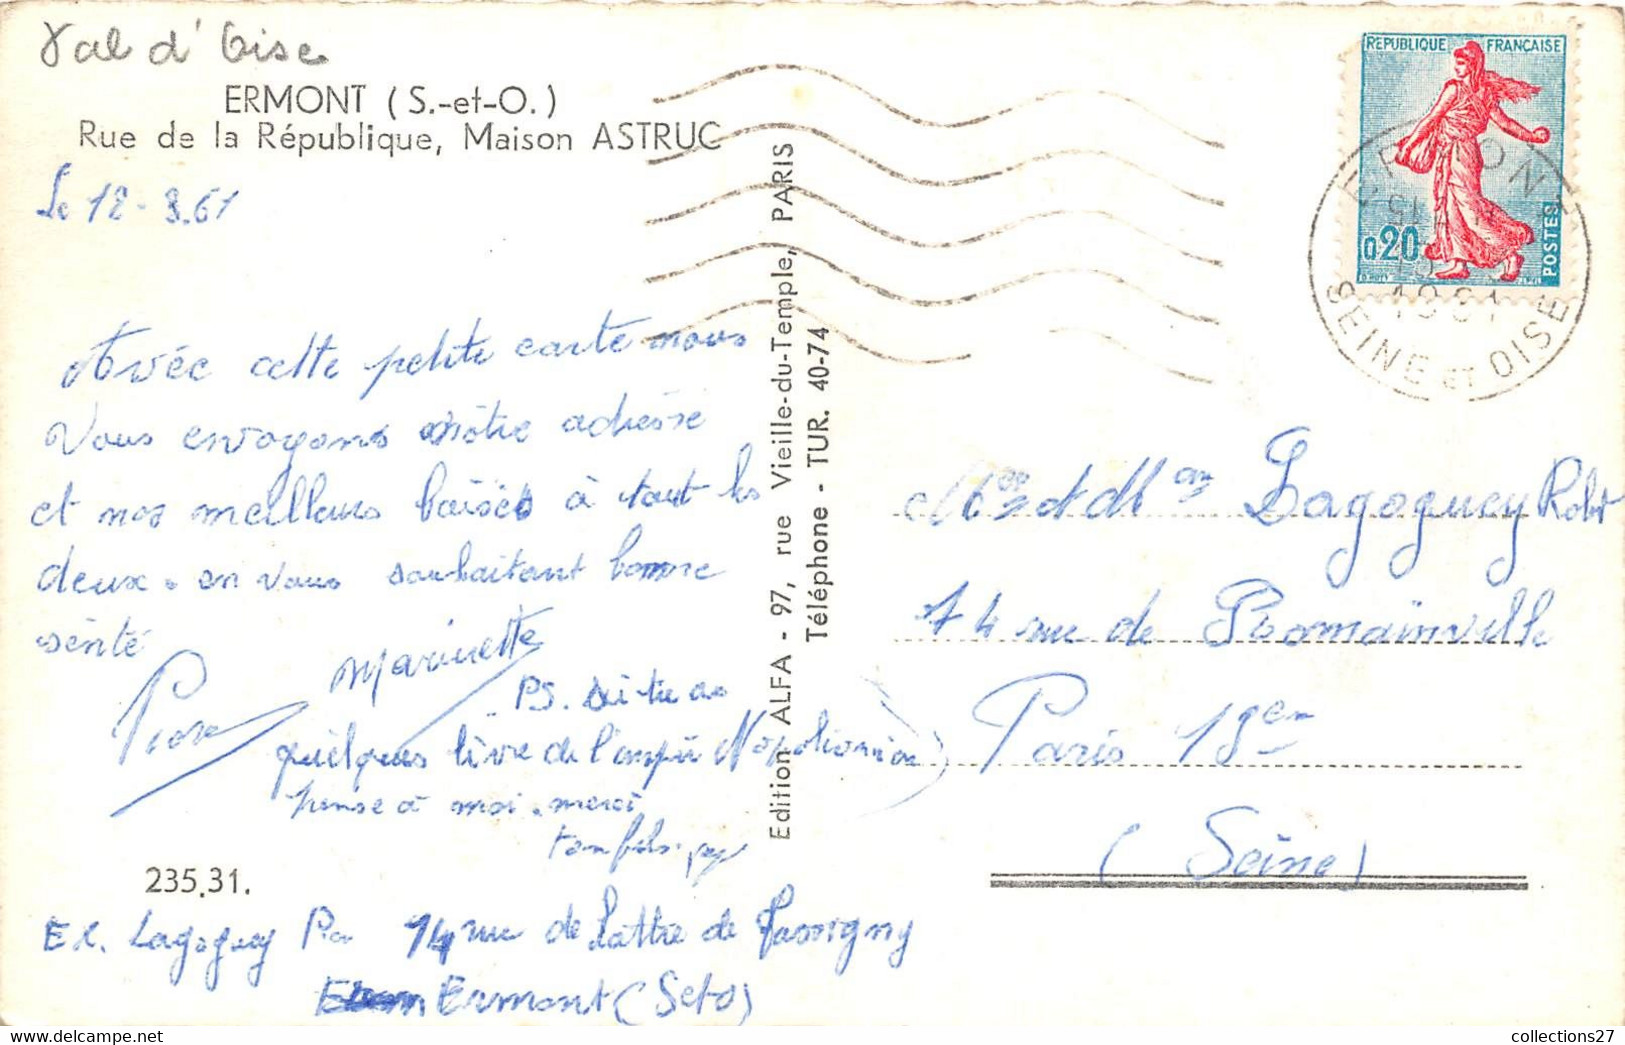 Val d'Oise
ERMONT (S.-et-O.)
Rue de la République, Maison ASTRUC
Le 12-3.61
Avéc cette petite carte nous
Vous envoyons nôtre adresse
et nos meilleurs baisés à tout les
deux. en vous souhaitant bonne
sénté
Marinette
PS.
quelques livre de l'
pense à moi. merci
235.31.
Ex. Lagoguey 14 rue de Lattre de Tassigny
Ermont (SetO)
Edition ALFA - 97, rue Vieille-du-Temple, PARIS
Téléphone - TUR. 40-74
REPUBLIQUE FRANÇAISE
0,20
POSTES
ERMONT
1961
SEINE ET OISE
Lagoguey Robert
74 rue de Romainville
Paris 19em
(Seine)
collections27